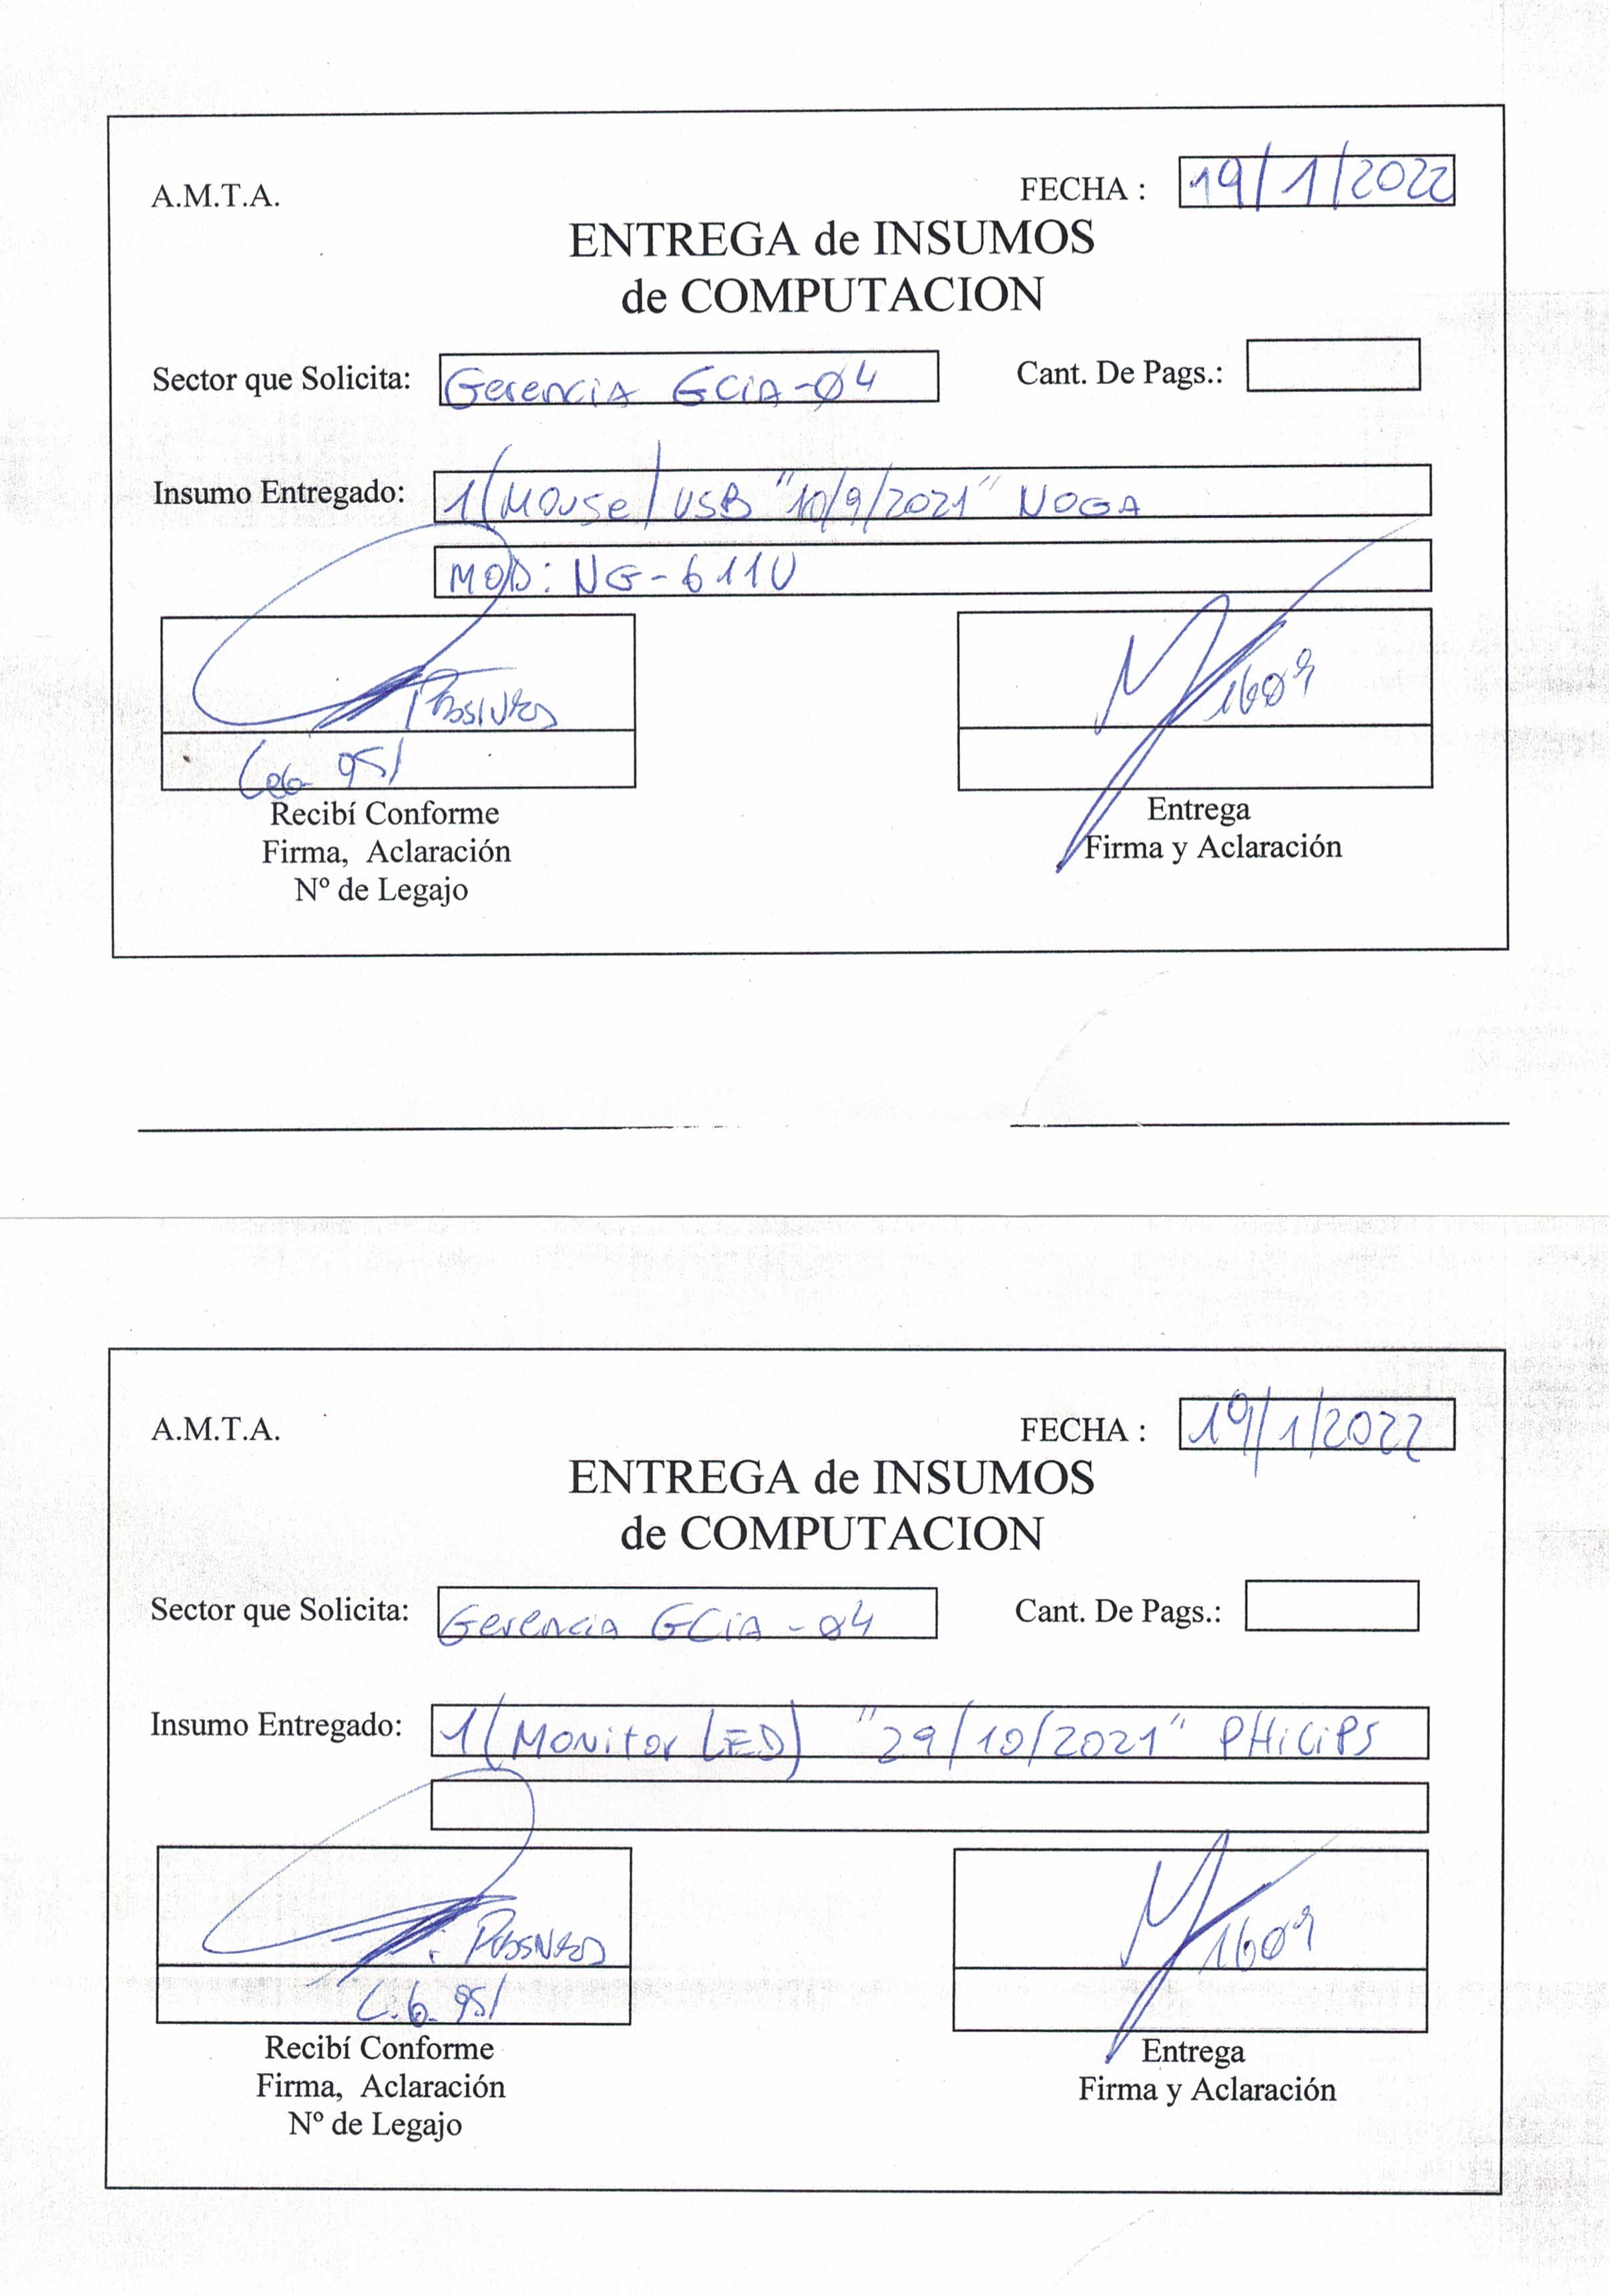 A.M.T.A.
FECHA : 19/1/2022
ENTREGA de INSUMOS
de COMPUTACION
Sector que Solicita: Gerencia GCIA-04
Cant. De Pags.:
Insumo Entregado: 1(Mouse/USB "10/9/2021" NOGA
MOD: NG-611U
1609
951
Recibí Conforme
Firma, Aclaración
Nº de Legajo
Entrega
Firma y Aclaración
A.M.T.A.
FECHA : 19/1/2022
ENTREGA de INSUMOS
de COMPUTACION
Sector que Solicita: Gerencia GCIA-04
Cant. De Pags.:
Insumo Entregado: 1(Monitor LED) "29/10/2021" PHILIPS
1609
951
Recibí Conforme
Firma, Aclaración
Nº de Legajo
Entrega
Firma y Aclaración